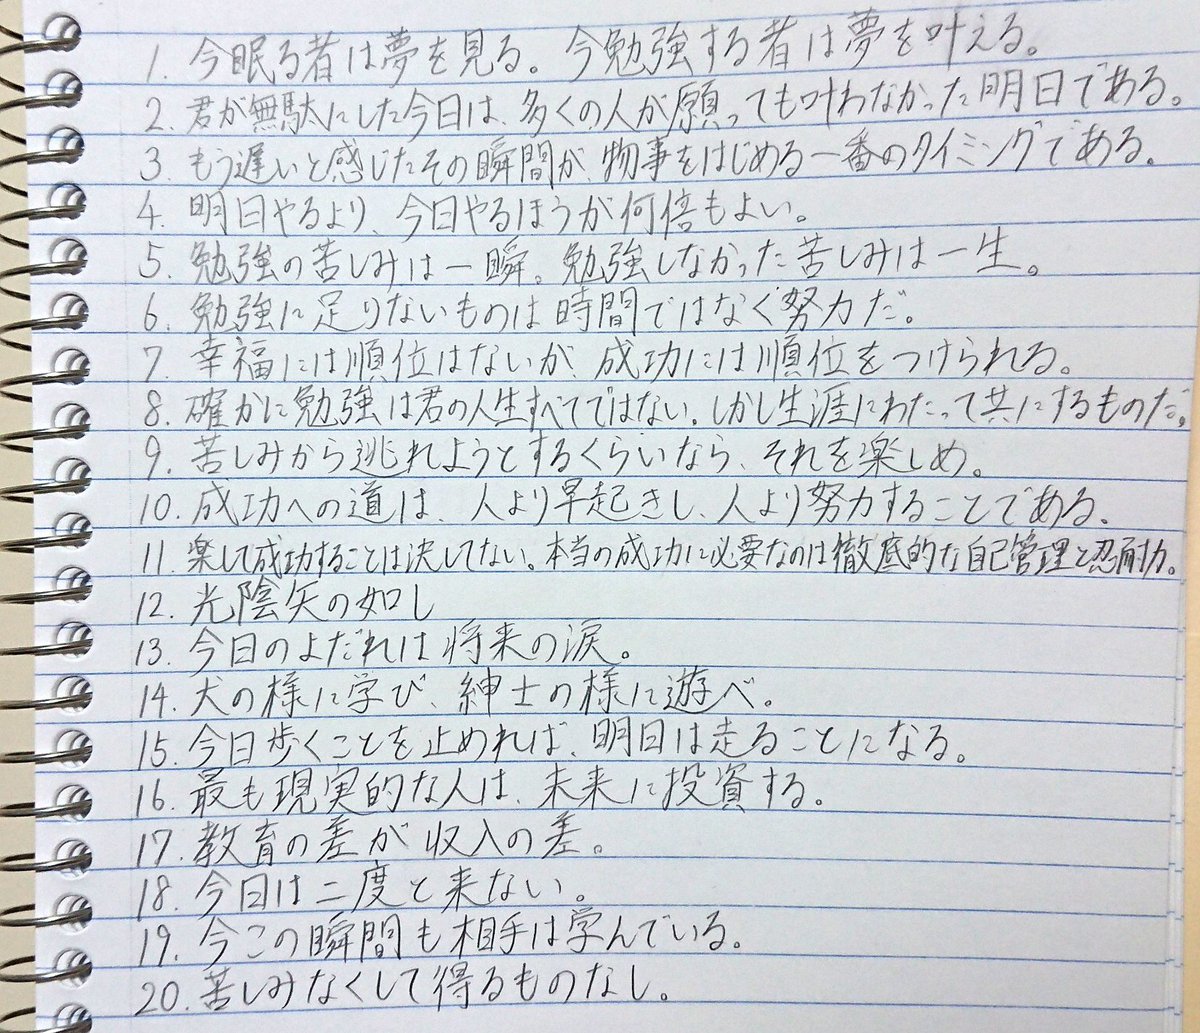 1. 今眠る者は夢を見る。今勉強する者は夢を叶える。
2. 君が無駄にした今日は、多くの人が願っても叶わなかった明日である。
3. もう遅いと感じたその瞬間が、物事をはじめる一番のタイミングである。
4. 明日やるより、今日やるほうが何倍もよい。
5. 勉強の苦しみは一瞬。勉強しなかった苦しみは一生。
6. 勉強に足りないものは時間ではなく努力だ。
7. 幸福には順位はないが、成功には順位をつけられる。
8. 確かに勉強は君の人生すべてではない。しかし生涯にわたって共にするものだ。
9. 苦しみから逃れようとするくらいなら、それを楽しめ。
10. 成功への道は、人より早起きし、人より努力することである。
11. 楽して成功することは決してない。本当の成功に必要なのは徹底的な自己管理と忍耐力。
12. 光陰矢の如し
13. 今日のよだれは将来の涙。
14. 犬の様に学び、紳士の様に遊べ。
15. 今日歩くことを止めれば、明日は走ることになる。
16. 最も現実的な人は、未来に投資する。
17. 教育の差が収入の差。
18. 今日は二度と来ない。
19. 今この瞬間も相手は学んでいる。
20. 苦しみなくして得るものなし。